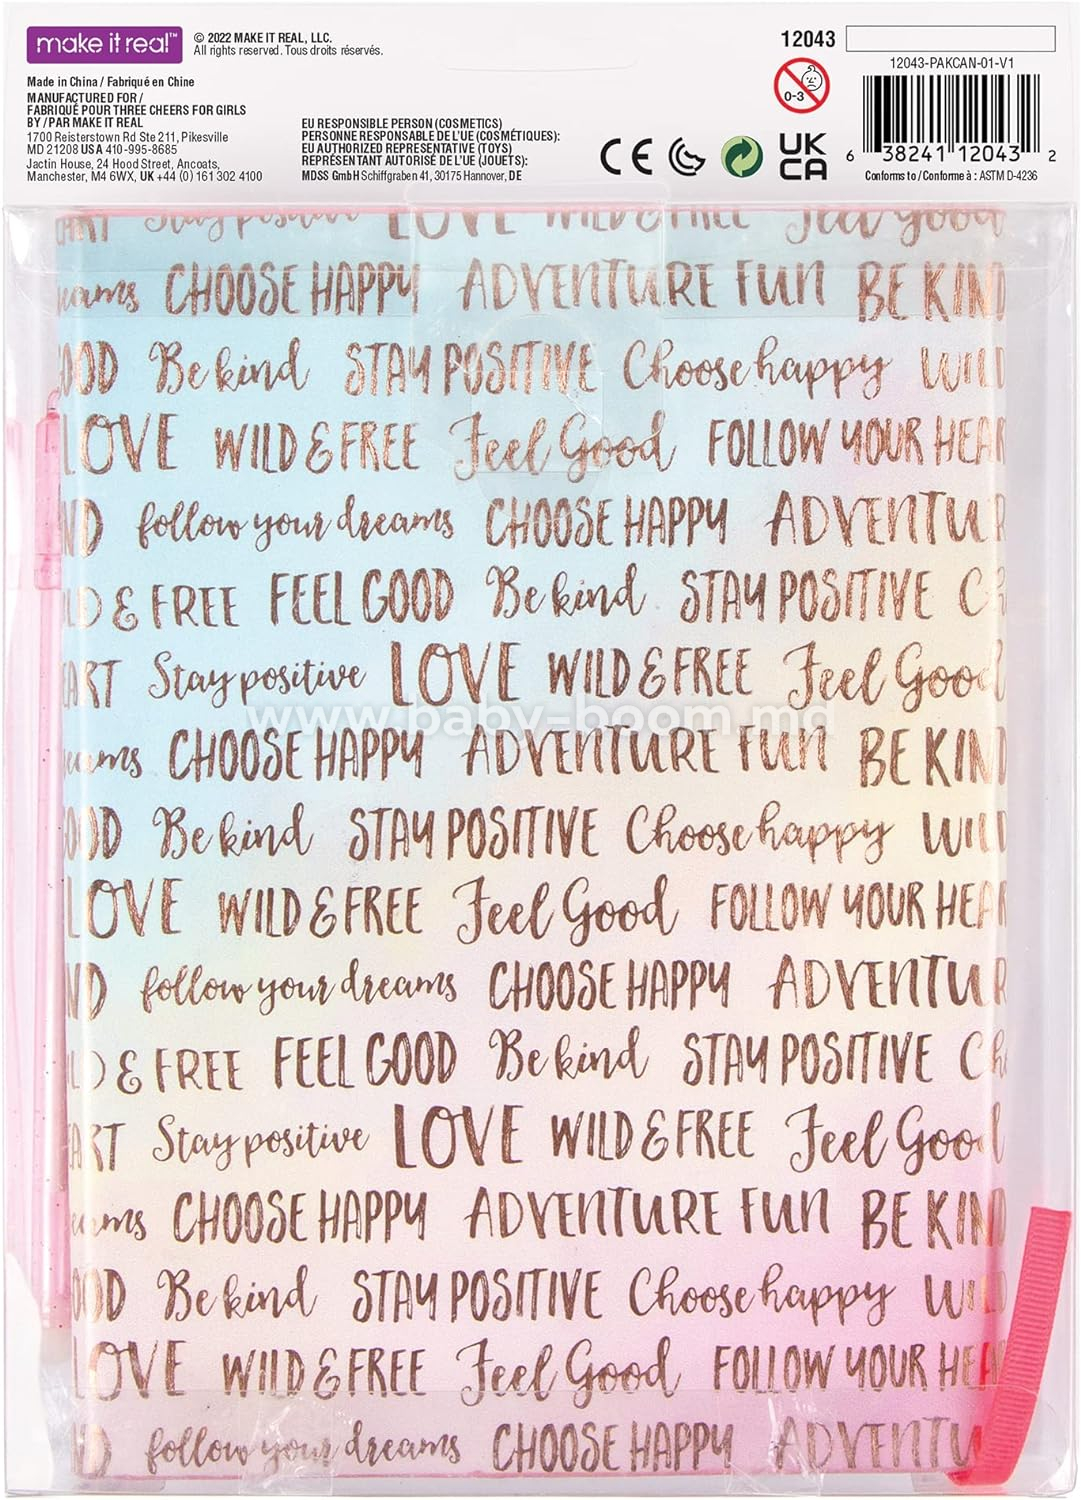 make it real™
© 2022 MAKE IT REAL, LLC.
All rights reserved. Tous droits réservés.
Made in China / Fabriqué en Chine
MANUFACTURED FOR /
FABRIQUÉ POUR THREE CHEERS FOR GIRLS
BY / PAR MAKE IT REAL
1700 Reisterstown Rd Ste 211, Pikesville
MD 21208 USA 410-995-8685
Jactin House, 24 Hood Street, Ancoats,
Manchester, M4 6WX, UK +44 (0) 161 302 4100
EU RESPONSIBLE PERSON (COSMETICS)
PERSONNE RESPONSABLE DE L'UE (COSMÉTIQUES):
EU AUTHORIZED REPRESENTATIVE (TOYS)
REPRÉSENTANT AUTORISÉ DE L'UE (JOUETS):
MDSS GmbH Schiffgraben 41, 30175 Hannover, DE
12043
0-3
CE
UK
CA
12043-PAKCAN-01-V1
6 38241 12043 2
Conforms to / Conforme à : ASTM D-4236
EART Stay positive LOVE WILD & FREE Feel Good
eams CHOOSE HAPPY ADVENTURE FUN BE KIND
OOD Be kind STAY POSITIVE Choose happy WILD
LOVE WILD & FREE Feel Good FOLLOW YOUR HEAR
ND follow your dreams CHOOSE HAPPY ADVENTUR
LD & FREE FEEL GOOD Be kind STAY POSITIVE Ch
EART Stay positive LOVE WILD & FREE Feel Good
www.baby-boom.md
eams CHOOSE HAPPY ADVENTURE FUN BE KIND
OOD Be kind STAY POSITIVE Choose happy WILD
LOVE WILD & FREE Feel Good FOLLOW YOUR HEAR
ND follow your dreams CHOOSE HAPPY ADVENTUR
LD & FREE FEEL GOOD Be kind STAY POSITIVE Ch
EART Stay positive LOVE WILD & FREE Feel Good
eams CHOOSE HAPPY ADVENTURE FUN BE KIND
OOD Be kind STAY POSITIVE Choose happy WILD
LOVE WILD & FREE Feel Good FOLLOW YOUR HEAR
ND follow your dreams CHOOSE HAPPY ADVENTU